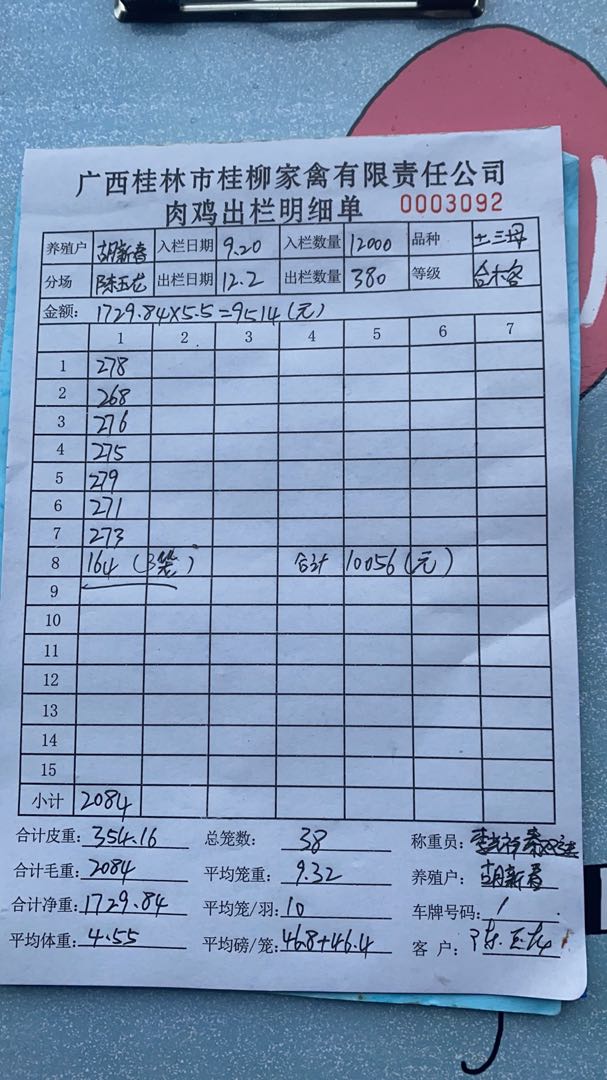 广西桂林市桂柳家禽有限责任公司
肉鸡出栏明细单 0003092
养殖户 胡新春 入栏日期 9.20 入栏数量 12000 品种 土三母
分场 陈玉龙 出栏日期 12.2 出栏数量 380 等级 合格
金额: 1729.84×5.5=9514(元)
1 2 3 4 5 6 7
1 278
2 268
3 276
4 275
5 279
6 271
7 273
8 164(3笼) 合计 10056(元)
9
10
11
12
13
14
15
小计 2084
合计皮重: 354.16 总笼数: 38 称重员:
合计毛重: 2084 平均笼重: 9.32 养殖户: 胡新春
合计净重: 1729.84 平均笼/羽: 10 车牌号码: /
平均体重: 4.55 平均磅/笼: 46.8+46.4 客户: